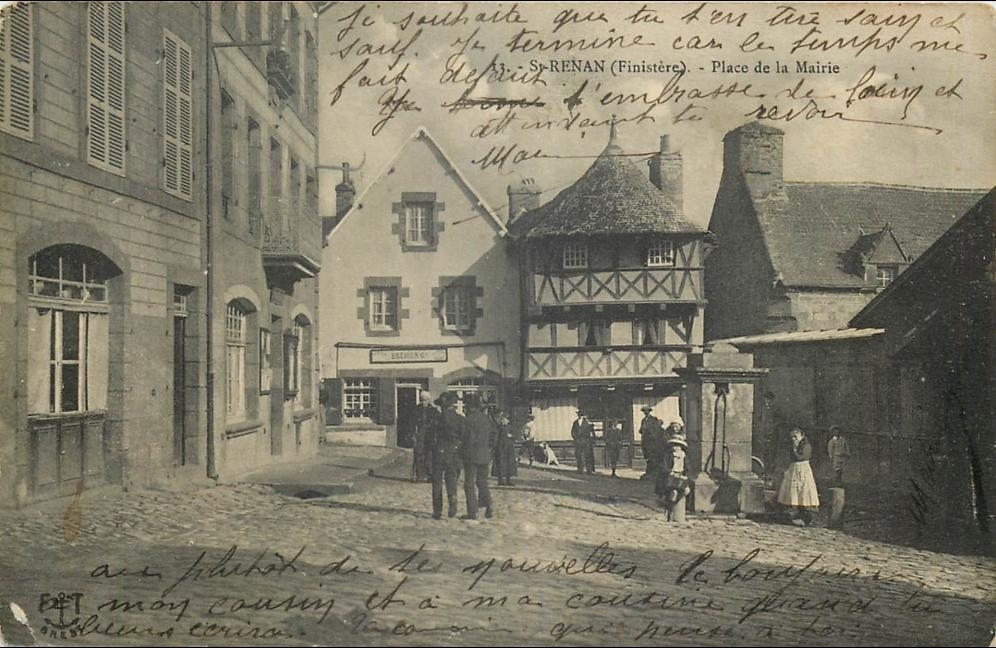 Je souhaite que tu t'en tire sain et
sauf. Je termine car le temps me
13. - St-RENAN (Finistère). - Place de la Mairie
fait défaut
Je t'embrasse de loin et
attendant te revoir
au plutôt de tes nouvelles le bonjour
mon cousin et à ma cousine quand tu
leurs écrira. qui pense à toi
F T
BREST